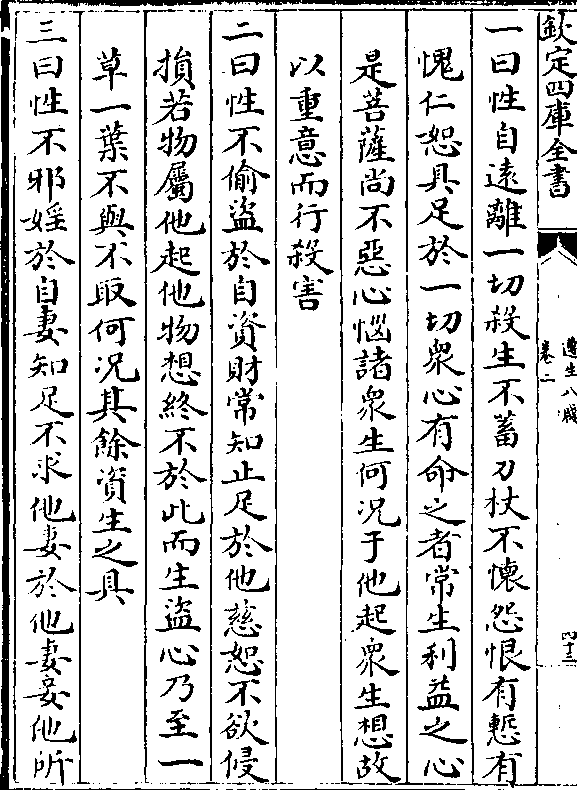 欽定四庫全書
遵生八牋
卷二
四十三
一曰性自遠離一切殺生不蓄刀杖不懷怨恨有慙有
愧仁恕具足於一切衆心有命之者常生利益之心
是菩薩尚不惡心惱諸衆生何况于他起衆生想故
以重意而行殺害
二曰性不偷盜於自資財常知止足於他慈恕不欲侵
損若物屬他起他物想終不於此而生盜心乃至一
草一葉不與不取何况其餘資生之具
三曰性不邪婬於自妻知足不求他妻於他妻妾他所